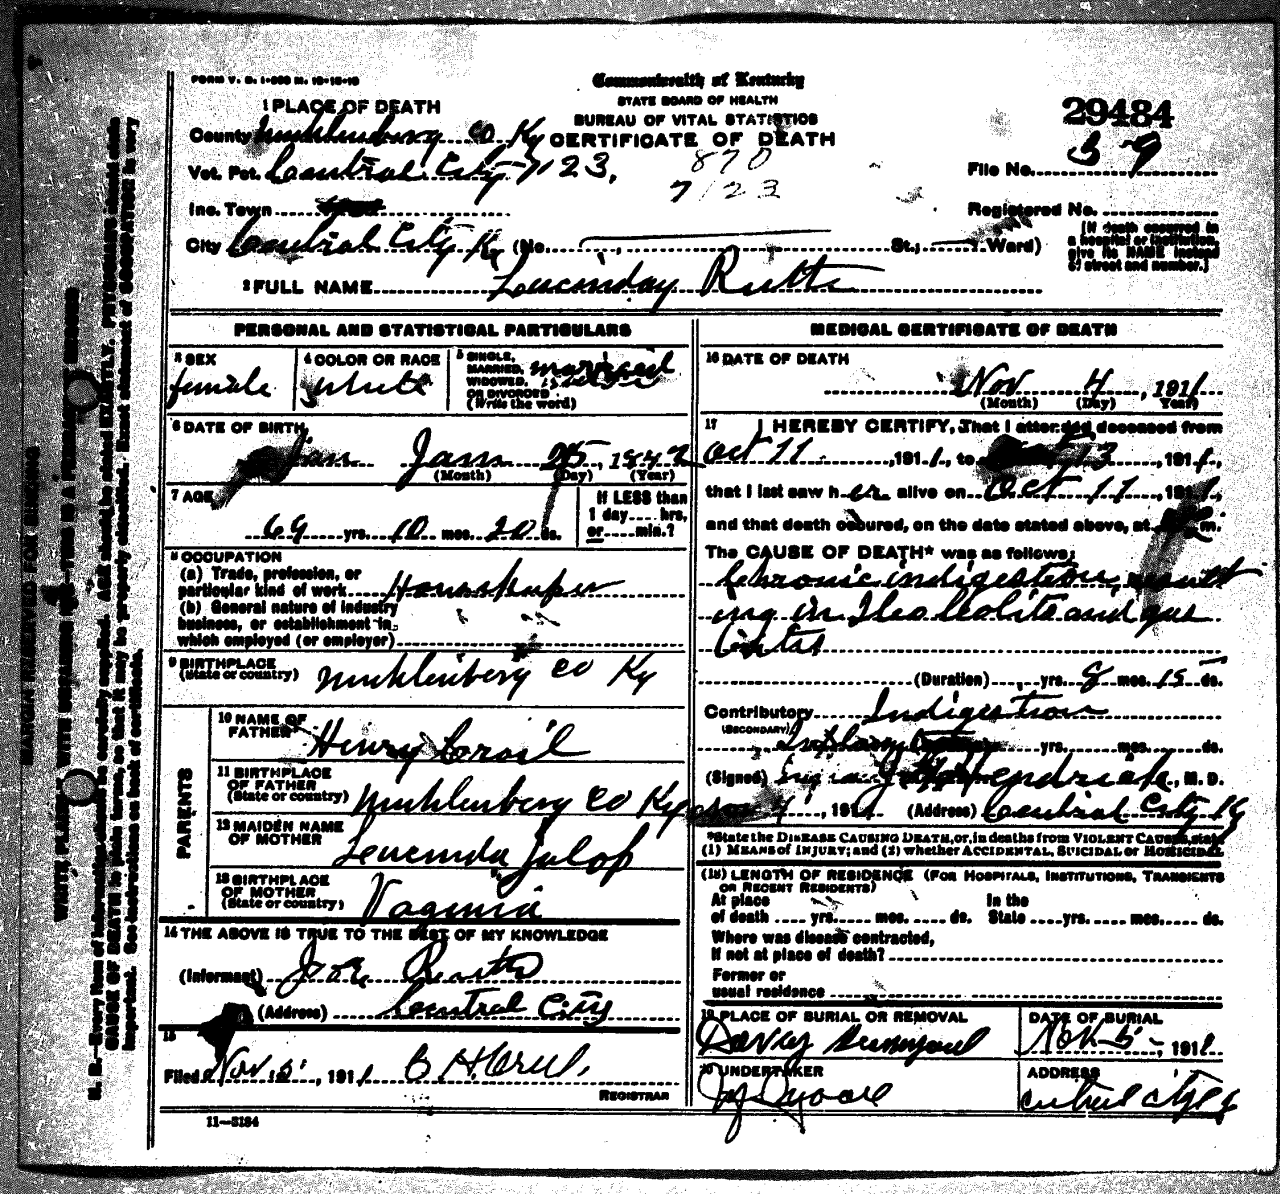 FORM V. S. 1-500 M. 12-15-10
Commonwealth of Kentucky
STATE BOARD OF HEALTH
BUREAU OF VITAL STATISTICS
CERTIFICATE OF DEATH
29484
1 PLACE OF DEATH
County Muhlenburg Co Ky
Vot. Pct. Central City 7123.
870
7123
File No. 59
Inc. Town
Registered No.
City Central City Ky (No. , St.; Ward)
[If death occurred in
a hospital or institution,
give its NAME instead
of street and number.]
2 FULL NAME Lucinday Rutte
PERSONAL AND STATISTICAL PARTICULARS
3 SEX
female
4 COLOR OR RACE
white
5 SINGLE,
MARRIED,
WIDOWED,
OR DIVORCED
(Write the word)
married
6 DATE OF BIRTH
Jan Jan 25, 1842
(Month) (Day) (Year)
7 AGE
69 yrs. 10 mos. 20 ds.
If LESS than
1 day hrs.
or min.?
8 OCCUPATION
(a) Trade, profession, or
particular kind of work Housekeeper
(b) General nature of industry
business, or establishment in
which employed (or employer)
9 BIRTHPLACE
(State or country) Muhlenberg Co Ky
PARENTS
10 NAME OF
FATHER Henry
11 BIRTHPLACE
OF FATHER
(State or country) Muhlenberg Co Ky
12 MAIDEN NAME
OF MOTHER Leucinda
13 BIRTHPLACE
OF MOTHER
(State or country) Vaginia
14 THE ABOVE IS TRUE TO THE BEST OF MY KNOWLEDGE
(Informant) Joe
(Address) Central City
15
Filed Nov 5, 1911
REGISTRAR
11—5184
MEDICAL CERTIFICATE OF DEATH
16 DATE OF DEATH
Nov 4, 1911
(Month) (Day) (Year)
17 I HEREBY CERTIFY, That I attended deceased from
Oct 11, 1911, to 13, 191
that I last saw her alive on Oct 11, 191
and that death occured, on the date stated above, at m.
The CAUSE OF DEATH* was as follows:
Chronic indigestion, result
ing in Ileo Colitis and gas
tritis
(Duration) yrs. 8 mos. 15 ds.
Contributory Indigestion
(SECONDARY)
yrs. mos. ds.
(Signed) Hendricks, M. D.
Nov 4, 1911 (Address) Central City Ky
*State the DISEASE CAUSING DEATH, or, in deaths from VIOLENT CAUSES, state
(1) MEANS of INJURY; and (2) whether ACCIDENTAL, SUICIDAL or HOMICIDAL
(18) LENGTH OF RESIDENCE (FOR HOSPITALS, INSTITUTIONS, TRANSIENTS
OR RECENT RESIDENTS)
At place
of death yrs. mos. ds.
In the
State yrs. mos. ds.
Where was disease contracted,
If not at place of death?
Former or
usual residence
19 PLACE OF BURIAL OR REMOVAL
DATE OF BURIAL
Nov 5, 1911
20 UNDERTAKER
ADDRESS
MARGIN RESERVED FOR BINDING
WRITE PLAINLY WITH UNFADING INK—THIS IS A PERMANENT RECORD
N. B.—Every item of information should be carefully supplied. AGE should be stated EXACTLY. PHYSICIANS should state
CAUSE OF DEATH in plain terms, so that it may be properly classified. Exact statement of OCCUPATION is very
important. See instructions on back of certificate.